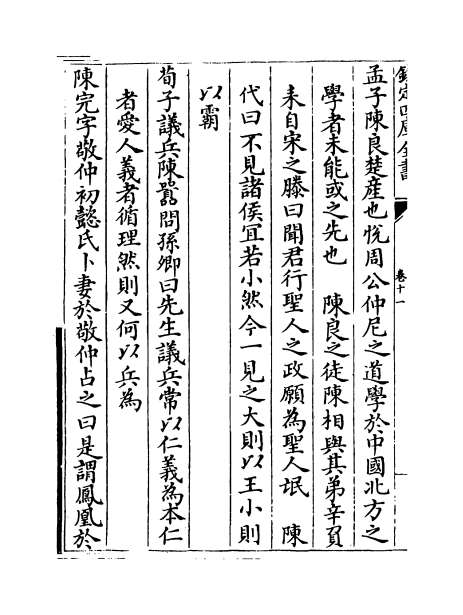 欽定四庫全書
卷十一
孟子陳良楚產也悅周公仲尼之道學於中國北方之
學者未能或之先也　陳良之徒陳相與其弟辛負
耒自宋之滕曰聞君行聖人之政願為聖人氓　陳
代曰不見諸侯宜若小然今一見之大則以王小則
以霸
荀子議兵陳囂問孫卿曰先生議兵常以仁義為本仁
者愛人義者循理然則又何以兵為
陳完字敬仲初懿氏卜妻於敬仲占之曰是謂鳳凰於